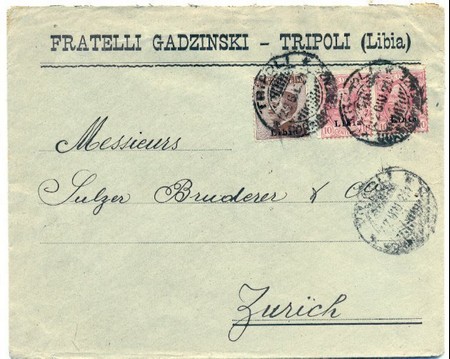 FRATELLI GADZINSKI – TRIPOLI (Libia)
TRIPOLI
Libia
10
Messieurs
Sulzer Bruderer & Co
Zurich